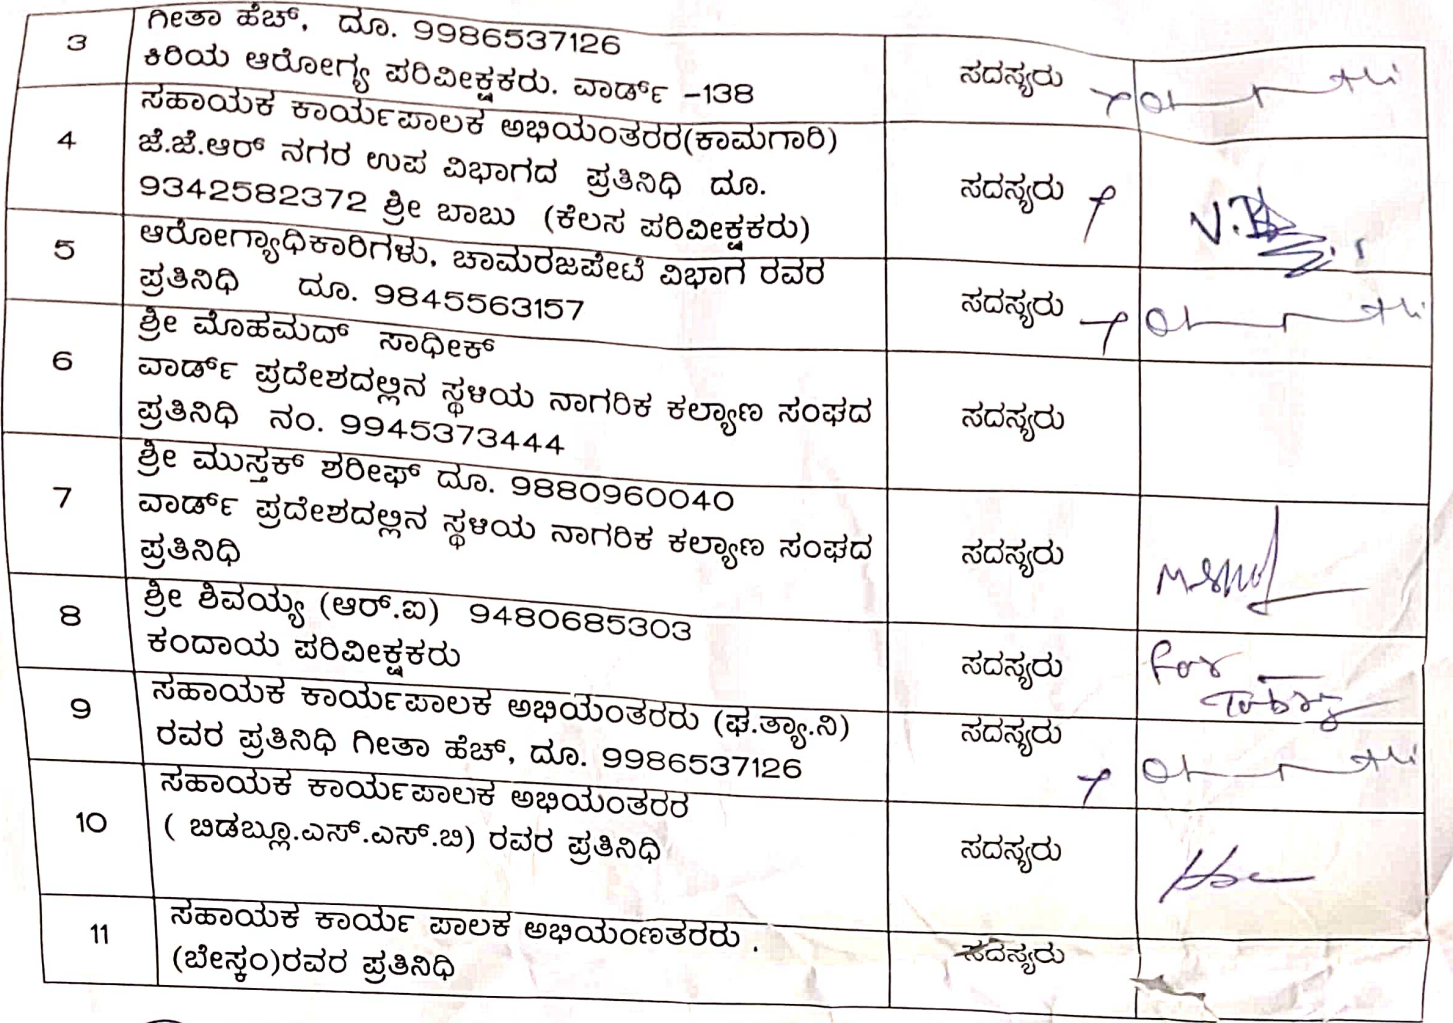 3
ಗೀತಾ ಹೆಚ್, ದೂ. 9986537126
ಕಿರಿಯ ಆರೋಗ್ಯ ಪರಿವೀಕ್ಷಕರು. ವಾರ್ಡ್ -138
ಸದಸ್ಯರು
4
ಸಹಾಯಕ ಕಾರ್ಯಪಾಲಕ ಅಭಿಯಂತರರ(ಕಾಮಗಾರಿ)
ಜೆ.ಜೆ.ಆರ್ ನಗರ ಉಪ ವಿಭಾಗದ ಪ್ರತಿನಿಧಿ ದೂ.
9342582372 ಶ್ರೀ ಬಾಬು (ಕೆಲಸ ಪರಿವೀಕ್ಷಕರು)
ಸದಸ್ಯರು
5
ಆರೋಗ್ಯಾಧಿಕಾರಿಗಳು, ಚಾಮರಜಪೇಟೆ ವಿಭಾಗ ರವರ
ಪ್ರತಿನಿಧಿ ದೂ. 9845563157
ಸದಸ್ಯರು
6
ಶ್ರೀ ಮೊಹಮದ್ ಸಾಧೀಕ್
ವಾರ್ಡ್ ಪ್ರದೇಶದಲ್ಲಿನ ಸ್ಥಳಿಯ ನಾಗರಿಕ ಕಲ್ಯಾಣ ಸಂಘದ
ಪ್ರತಿನಿಧಿ ನಂ. 9945373444
ಸದಸ್ಯರು
7
ಶ್ರೀ ಮುಸ್ತಕ್ ಶರೀಫ್ ದೂ. 9880960040
ವಾರ್ಡ್ ಪ್ರದೇಶದಲ್ಲಿನ ಸ್ಥಳಿಯ ನಾಗರಿಕ ಕಲ್ಯಾಣ ಸಂಘದ
ಪ್ರತಿನಿಧಿ
ಸದಸ್ಯರು
8
ಶ್ರೀ ಶಿವಯ್ಯ (ಆರ್.ಐ) 9480685303
ಕಂದಾಯ ಪರಿವೀಕ್ಷಕರು
ಸದಸ್ಯರು
For
9
ಸಹಾಯಕ ಕಾರ್ಯಪಾಲಕ ಅಭಿಯಂತರರು (ಘ.ತ್ಯಾ.ನಿ)
ರವರ ಪ್ರತಿನಿಧಿ ಗೀತಾ ಹೆಚ್, ದೂ. 9986537126
ಸದಸ್ಯರು
10
ಸಹಾಯಕ ಕಾರ್ಯಪಾಲಕ ಅಭಿಯಂತರರ
( ಬಿಡಬ್ಲೂ.ಎಸ್.ಎಸ್.ಬಿ) ರವರ ಪ್ರತಿನಿಧಿ
ಸದಸ್ಯರು
11
ಸಹಾಯಕ ಕಾರ್ಯ ಪಾಲಕ ಅಭಿಯಂಣತರರು .
(ಬೇಸ್ಕಂ)ರವರ ಪ್ರತಿನಿಧಿ
ಸದಸ್ಯರು